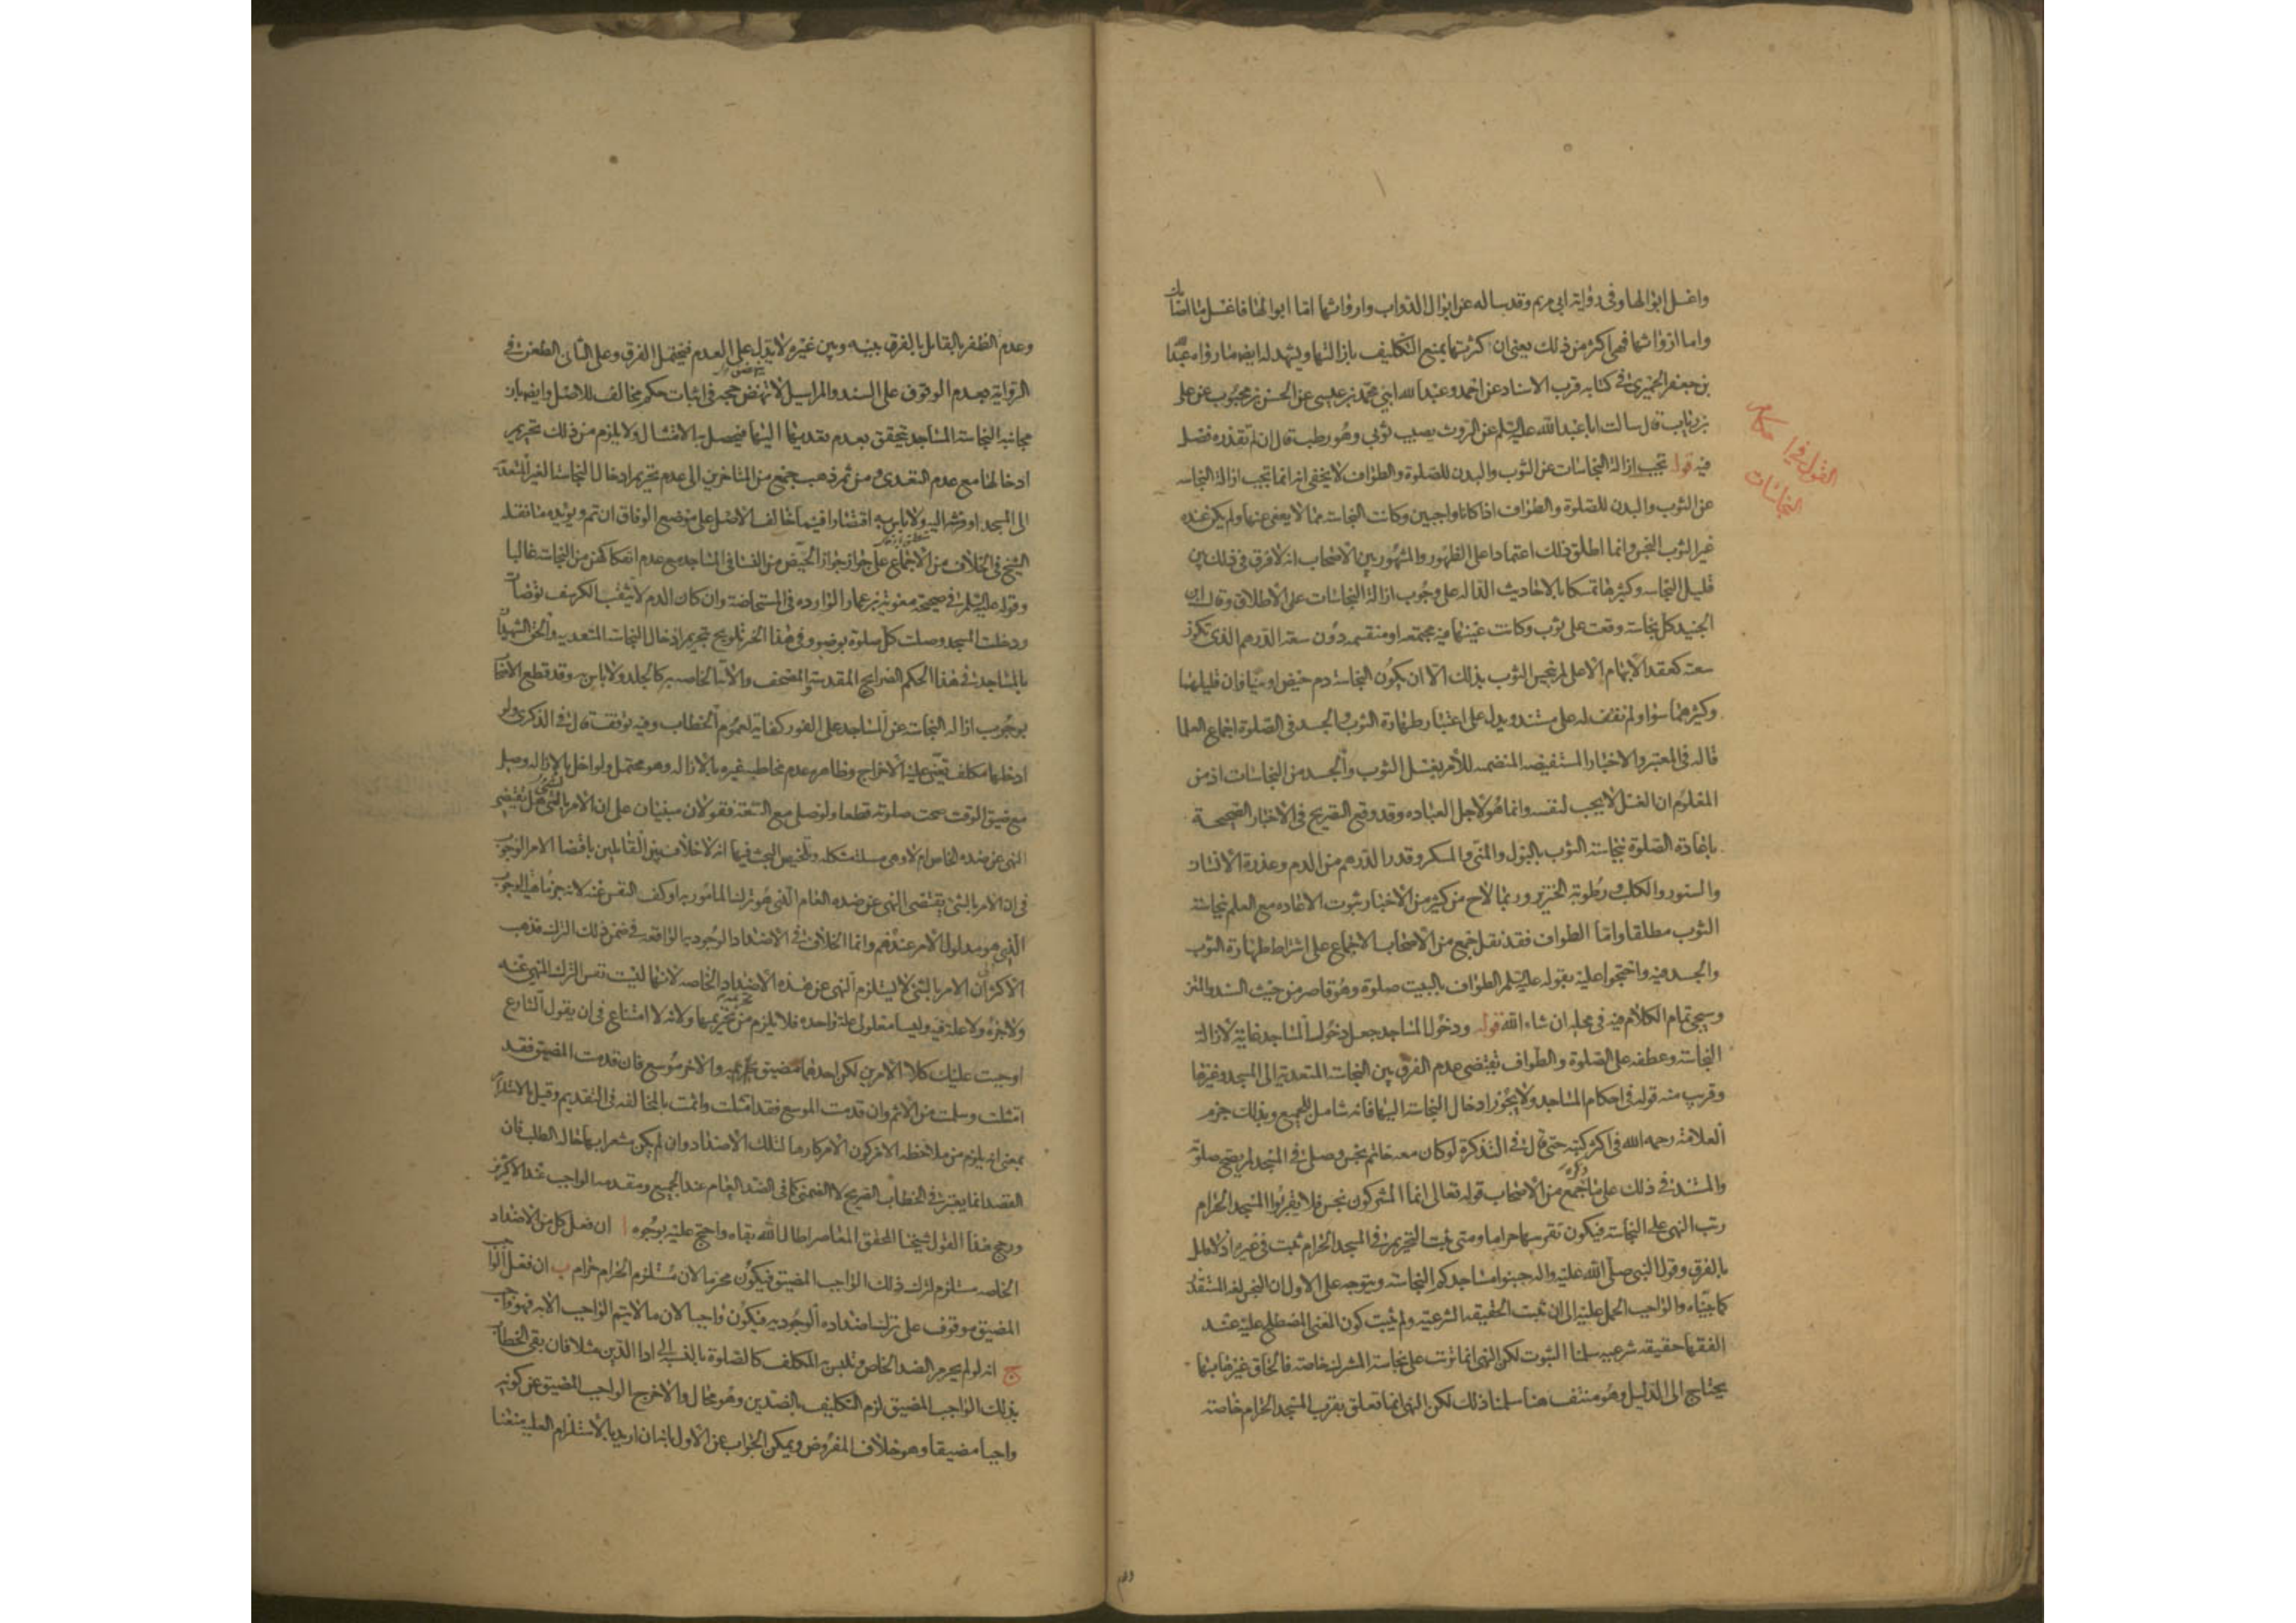 واغسل ابوالها وفى رواية ابى مريم وقد ساله عن ابوال الدواب وارواثها اما ابوالها فاغسل ما اصابك
واما ارواثها فهى اكثر من ذلك يعنى ان كثرتها يمنع التكليف بازالتها ويشهد له ايضا ما رواه عبد الله
بن جعفر الحميرى فى كتابه قرب الاسناد عن احمد وعبد الله ابنى محمد بن عيسى عن الحسن بن محبوب عن على
بن رئاب قال سالت ابا عبد الله عليه السلم عن الروث يصيب ثوبى وهو رطب قال ان لم تقذره فصل
فيه قوله تجب ازالة النجاسات عن الثوب والبدن للصلوة والطواف لا يخفى انه انما تجب ازالة النجاسه
عن الثوب والبدن للصلوة والطواف اذا كانا واجبين وكانت النجاسة مما لا يعفى عنها ولم يكن عنده
غير الثوب النجس وانما اطلق ذلك اعتمادا على الظهور والمشهور بين الاصحاب انه لا فرق فى ذلك بين
قليل النجاسه وكثيرها تمسكا بالاحاديث الداله على وجوب ازالة النجاسات على الاطلاق وقال ابن
الجنيد كل نجاسة وقعت على ثوب وكانت عينها فيه مجتمعه او منقسمه دون سعة الدرهم الذى تكون
سعته كعقد الابهام الاعلى لم ينجس الثوب بذلك الا ان يكون النجاسة دم حيض او منيا فان قليلهما
وكثيرهما سواء ولم نقف له على مستند ويدل على اعتبار طهارة الثوب والجسد فى الصلوة اجماع العلما
قاله فى المعتبر والاخبار المستفيضه المتضمنه للأمر بغسل الثوب والجسد من النجاسات اذ من
المعلوم ان الغسل لا يجب لنفسه وانما هو لاجل العباده وقد وقع التصريح فى الاخبار الصحيحة
باعادة الصلوة بنجاسة الثوب بالبول والمنى والمسكر وقدر الدرهم من الدم وعذرة الانسان
والسنور والكلب ورطوبة الخنزير وربما لاح من كثير من الاخبار ثبوت الاعاده مع العلم بنجاسة
الثوب مطلقا واما الطواف فقد نقل جمع من الاصحاب الاجماع على اشتراط طهارة الثوب
والجسد فيه واحتجوا عليه بقوله عليه السلم الطواف بالبيت صلوة وهو قاصر من حيث السند والمتن
وسيجئ تمام الكلام فيه فى محله ان شاء الله قوله ودخول المساجد جعل دخول المساجد غاية لازالة
النجاسة وعطفه على الصلوة والطواف يقتضى عدم الفرق بين النجاسة المتعدية الى المسجد وغيرها
وقريب منه قوله فى احكام المساجد ولا يجوز ادخال النجاسة اليها فانه شامل للجميع وبذلك جزم
العلامة رحمه الله فى اكثر كتبه حتى قال فى التذكرة لو كان معه خاتم نجس وصلى فى المسجد لم يصح صلوته
والمستند فى ذلك على ما ذكره جمع من الاصحاب قوله تعالى انما المشركون نجس فلا يقربوا المسجد الحرام
رتب النهى على النجاسة فيكون تقريبها حراما ومتى ثبت التحريم فى المسجد الحرام ثبت فى غيره اذ لا قائل
بالفرق وقول النبى صلى الله عليه واله جنبوا مساجدكم النجاسة ويتوجه على الاول ان النجس لغة المستقذر
كما بيناه والواجب الحمل عليه الى ان تثبت الحقيقه الشرعيه ولم يثبت كون المعنى المصطلح عليه عند
الفقها حقيقه شرعيه سلمنا الثبوت لكن النهى انما ترتب على نجاسة المشرك خاصة فالحاق غيرها بها
يحتاج الى الدليل وهو منتف هنا سلمنا ذلك لكن النهى انما تعلق بقرب المسجد الحرام خاصة
القول فى احكام
النجاسات
وعدم الظفر بالقائل بالفرق بينه وبين غيره لا يدل على العدم فيحتمل الفرق وعلى الثانى الطعن فى
الرواية بعدم الوقوف على السند والمراسيل لا تنهض حجه فى اثبات حكم مخالف للاصل وايضا فان
مجانبة النجاسة المساجد يتحقق بعدم تعديتها اليها فيحصل به الامتثال ولا يلزم من ذلك تحريم
ادخالها مع عدم التعدى ومن ثم ذهب جمع من المتاخرين الى عدم تحريم ادخال النجاسة الغير المتعدية
الى المسجد او فرشه اليه ولا باس به اقتصارا فيما خالف الاصل على موضع الوفاق ان تم ويؤيده ما نقله
الشيخ فى الخلاف من الاجماع على جواز جواز الحيض من النسا فى المساجد مع عدم انفكاكهن من النجاسة غالبا
وقوله عليه السلم فى صحيحة معوية بن عمار الوارده فى المستحاضة وان كان الدم لا يثقب الكرسف توضأت
ودخلت المسجد وصلت كل صلوة بوضوء وفى هذا الخبر تلويح بتحريم ادخال النجاسة المتعديه والحق الشهيدان
بالمساجد فى هذا الحكم الضرايح المقدسة والمصحف وآلاته الخاصه به كالجلد ولا باس به وقد قطع الاصحاب
بوجوب ازالة النجاسة عن المساجد على الفور كفاية لعموم الخطاب وفيه توقف قال فى الذكرى ولو
ادخلها مكلف تعين عليه الاخراج وظاهره عدم مخاطبة غيره بالازاله وهو محتمل ولو اخل بالازاله وصلى
مع ضيق الوقت صحت صلوته قطعا ولو صلى مع السعة فقولان مبنيان على ان الامر بالشئ هل يقتضى
النهى عن ضده الخاص ام لا وهى مسئلة مشكله وتلخيص البحث فيها انه لا خلاف بين القائلين باقتضا الامر الوجوب
فى ان الامر بالشئ يقتضى النهى عن ضده العام الذى هو ترك المامور به او كف النفس عنه لانه جزء ماهية الوجوب
الذى هو مدلول الامر عندهم وانما الخلاف فى الاضداد الوجوديه الواقعه فى ضمن ذلك الترك فذهب
الاكثر الى ان الامر بالشئ لا يستلزم النهى عن هذه الاضداد الخاصه لانها ليست نفس الترك المنهى عنه
ولا جزءه ولا علة فيه وليسا معلولى علة واحده فلا يلزم من تحريمه تحريمها ولانه لا امتناع فى ان يقول الشارع
اوجبت عليك كلا الامرين لكن احدهما مضيق والاخر موسع فان قدمت المضيق فقد
امتثلت وسلمت من الاثم وان قدمت الموسع فقد امتثلت واثمت بالمخالفه فى التقديم وقيل بالاستلزام
بمعنى انه يلزم من ملاحظه الامر كون الامر كارها لتلك الاضداد وان لم يكن مشعرا بها حاله الطلب فان
القصد انما يعتبر فى الخطاب الصريح لا الضمنى كما فى الضد العام عند الجميع ومقدمة الواجب عند الاكثر
ورجح هذا القول شيخنا المحقق المعاصر اطال الله بقاه واحتج عليه بوجوه ا ان فعل كل من الاضداد
الخاصه مستلزم لترك ذلك الواجب المضيق فيكون محرما لان مستلزم الحرام حرام ب ان فعل الواجب
المضيق موقوف على ترك اضداده الوجوديه فيكون واجبا لان ما لا يتم الواجب الا به فهو واجب
ج انه لو لم يحرم الضد الخاص وتلبس به المكلف كالصلوة بالنسبة الى ادا الدين مثلا فان بقى الخطاب
بذلك الواجب المضيق لزم التكليف بالضدين وهو محال والا خرج الواجب المضيق عن كونه
واجبا مضيقا وهو خلاف المفروض ويمكن الجواب عن الاول بانه ان اريد بالاستلزام العليه منعنا